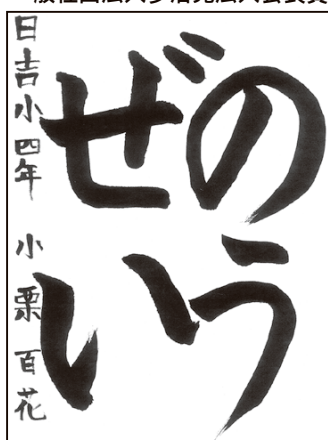 のう
ぜい
日吉小四年 小栗百花